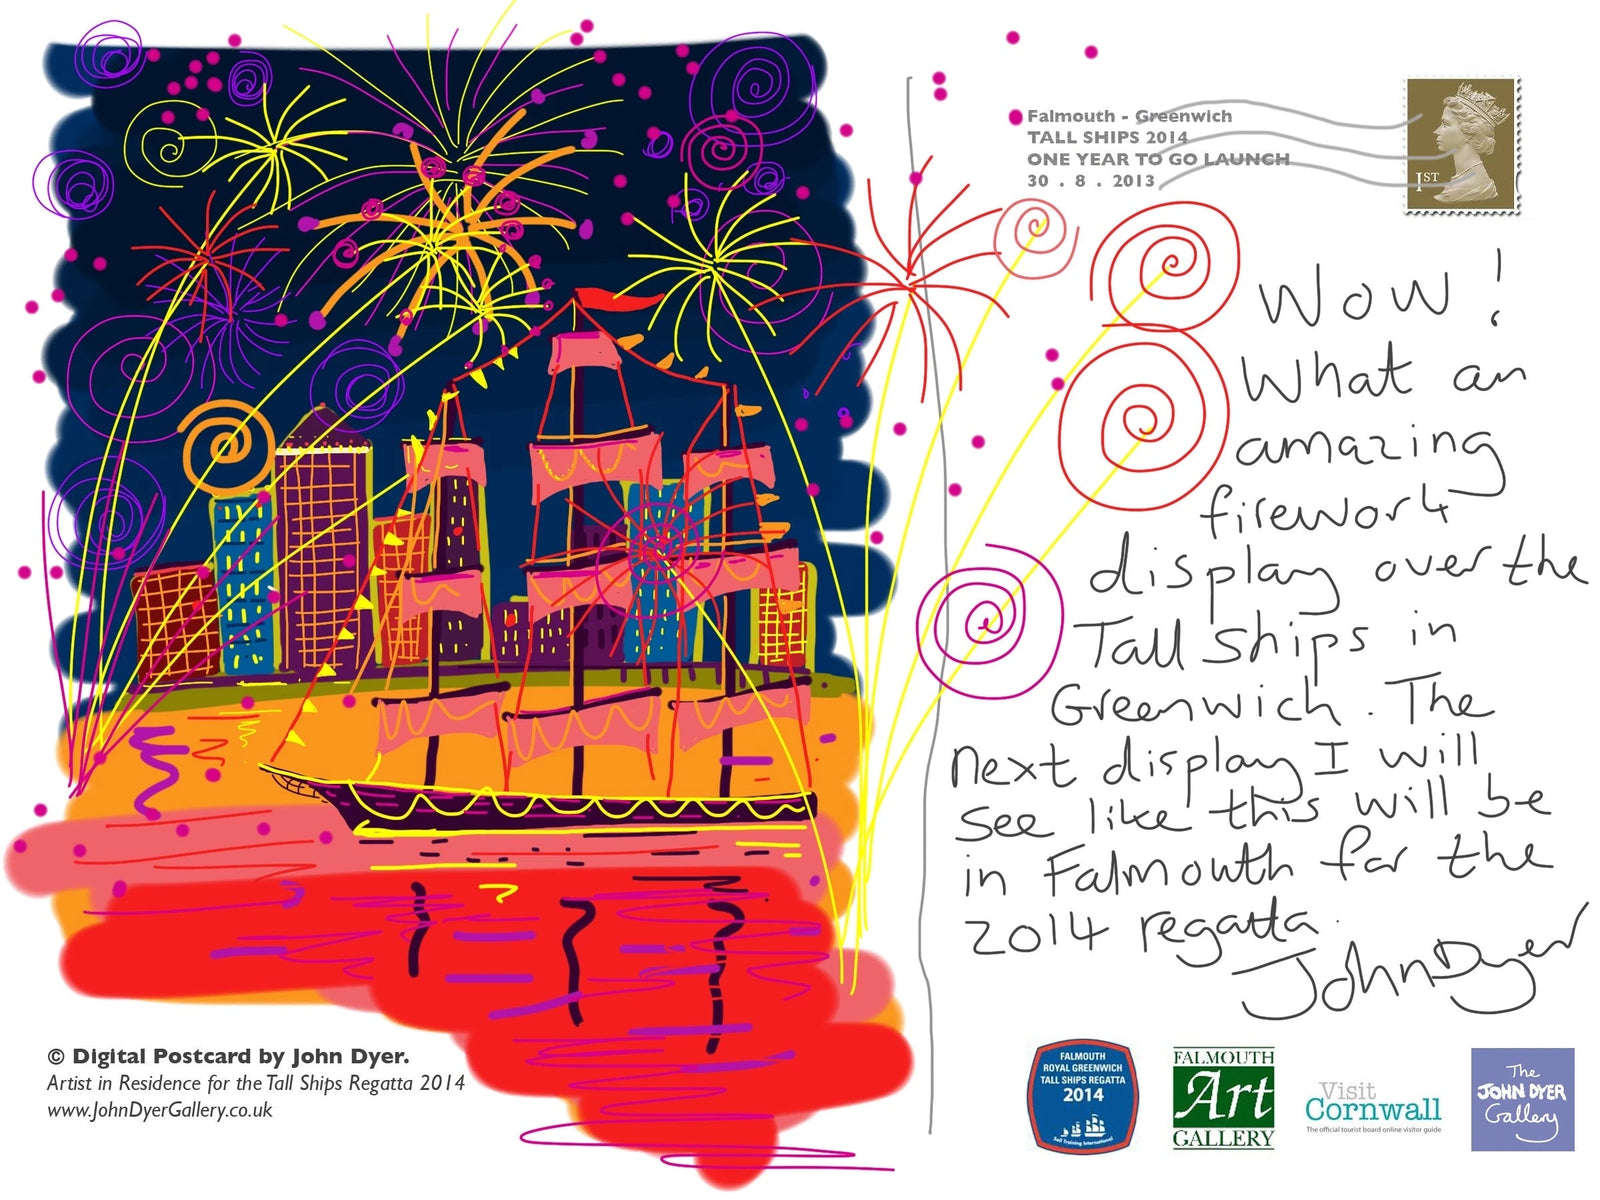 Falmouth - Greenwich
TALL SHIPS 2014
ONE YEAR TO GO LAUNCH
30 . 8 . 2013
1ST
Wow!
What an
amazing
firework
display over the
Tall Ships in
Greenwich. The
next display I will
see like this will be
in Falmouth for the
2014 regatta.
John Dyer
© Digital Postcard by John Dyer.
Artist in Residence for the Tall Ships Regatta 2014
www.JohnDyerGallery.co.uk
FALMOUTH
ROYAL GREENWICH
TALL SHIPS REGATTA
2014
Sail Training International
FALMOUTH
Art
GALLERY
Visit
Cornwall
The official tourist board online visitor guide
The
JOHN DYER
Gallery